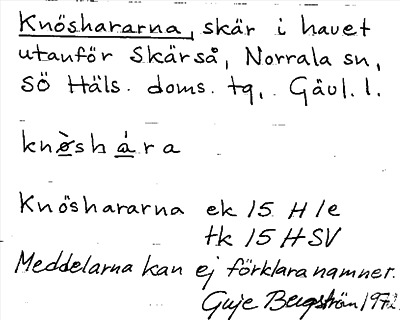 Knöshararna, skär i havet
utanför Skärså, Norrala sn,
Sö Häls. doms. tg., Gävl. l.
knø̀shá̱ra
Knöshararna ek 15 H 1e
tk 15 H SV
Meddelarna kan ej förklara namnet.
Guje Bergström 1972